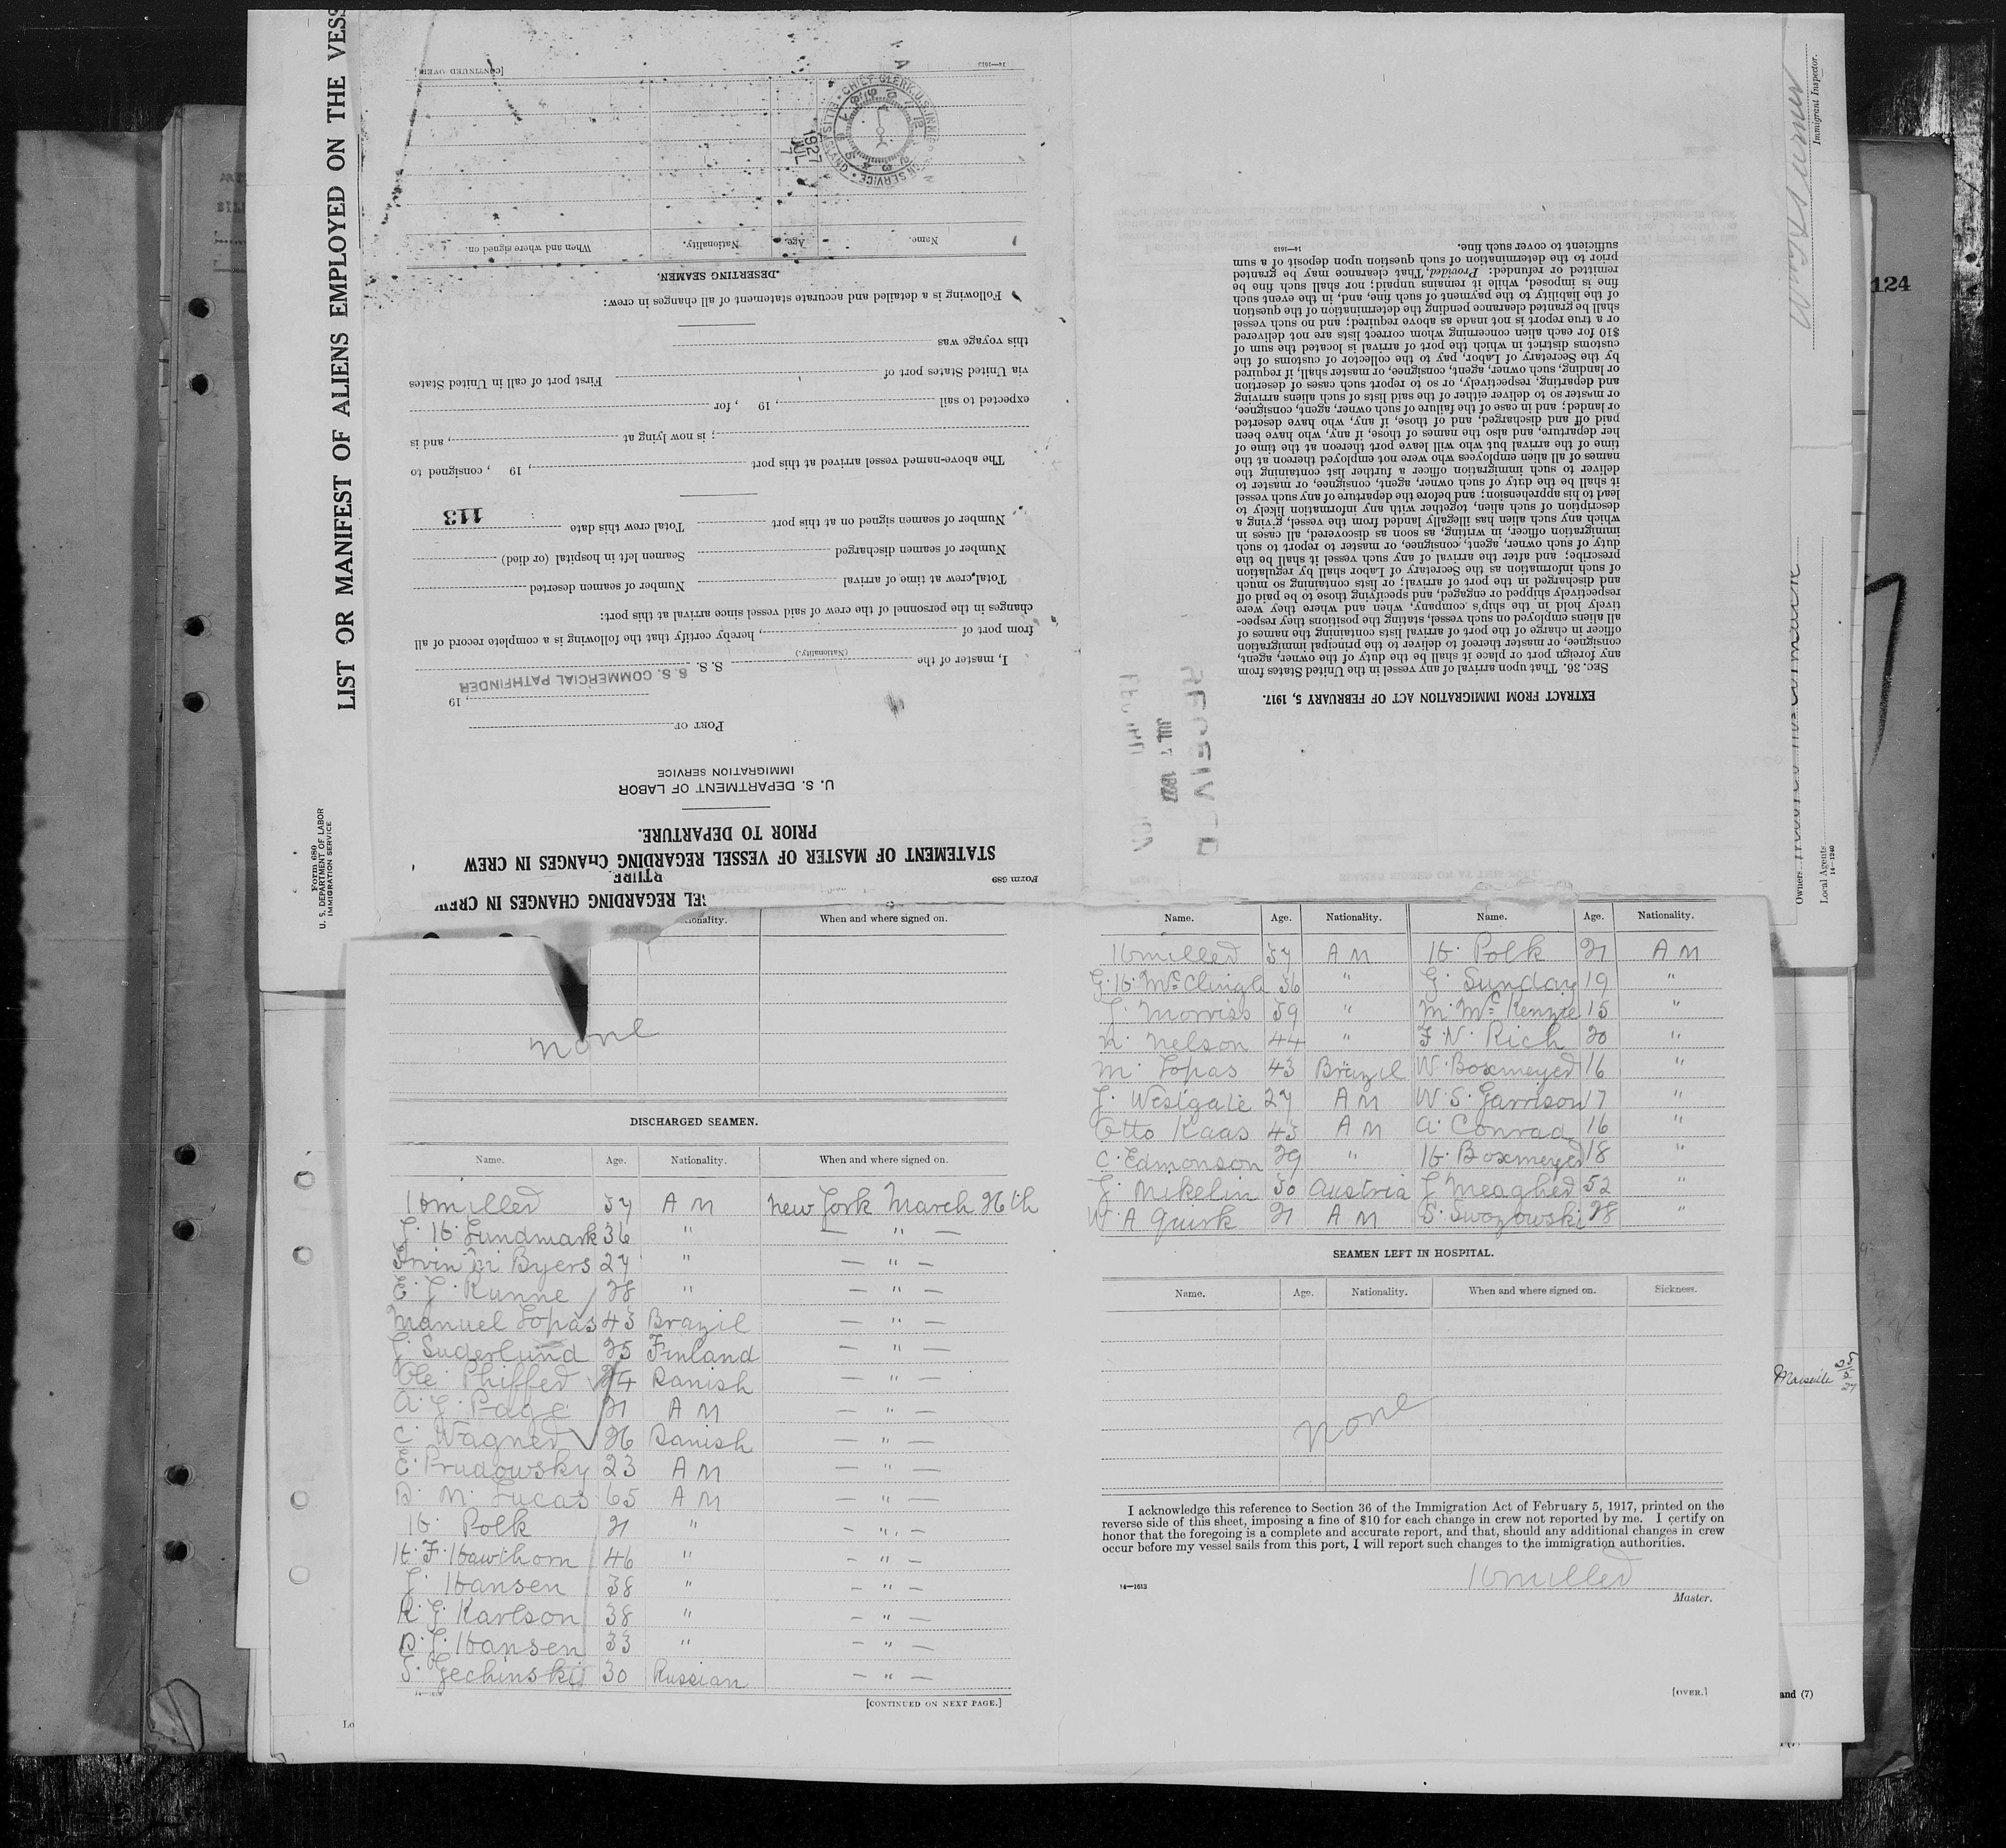 LIST OR MANIFEST OF ALIENS EMPLOYED ON THE VESS
Form 680
U. S. DEPARTMENT OF LABOR
IMMIGRATION SERVICE
Form 689
STATEMENT OF MASTER OF VESSEL REGARDING CHANGES IN CREW
PRIOR TO DEPARTURE.
U. S. DEPARTMENT OF LABOR
IMMIGRATION SERVICE
PORT OF
, 19
S. S. COMMERCIAL PATHFINDER
I, master of the S. S.
(Nationality.)
from port of , hereby certify that the following is a complete record of all
changes in the personnel of the crew of said vessel since arrival at this port:
Total crew at time of arrival Number of seamen deserted
Number of seamen discharged Seamen left in hospital (or died)
Number of seamen signed on at this port Total crew this date
113
The above-named vessel arrived at this port , 19 , consigned to
; is now lying at , and is
expected to sail , 19 , for
via United States port of First port of call in United States
this voyage was
Following is a detailed and accurate statement of all changes in crew:
DESERTING SEAMEN.
Name. Age. Nationality. When and where signed on.
14—1613 [CONTINUED OVER]
CHIEF CLERK, U.S. IMMI ON SERVICE • ELLIS ISLAND
1927 JUL 7
EXTRACT FROM IMMIGRATION ACT OF FEBRUARY 5, 1917.
SEC. 36. That upon arrival of any vessel in the United States from
any foreign port or place it shall be the duty of the owner, agent,
consignee, or master thereof to deliver to the principal immigration
officer in charge of the port of arrival lists containing the names of
all aliens employed on such vessel, stating the positions they respec-
tively hold in the ship's company, when and where they were
respectively shipped or engaged, and specifying those to be paid off
and discharged in the port of arrival; or lists containing so much
of such information as the Secretary of Labor shall by regulation
prescribe; and after the arrival of any such vessel it shall be the
duty of such owner, agent, consignee, or master to report to such
immigration officer, in writing, as soon as discovered, all cases in
which any such alien has illegally landed from the vessel, giving a
description of such alien, together with any information likely to
lead to his apprehension; and before the departure of any such vessel
it shall be the duty of such owner, agent, consignee, or master to
deliver to such immigration officer a further list containing the
names of all alien employees who were not employed thereon at the
time of the arrival but who will leave port thereon at the time of
her departure, and also the names of those, if any, who have been
paid off and discharged, and of those, if any, who have deserted
or landed; and in case of the failure of such owner, agent, consignee,
or master so to deliver either of the said lists of such aliens arriving
and departing, respectively, or so to report such cases of desertion
or landing, such owner, agent, consignee, or master shall, if required
by the Secretary of Labor, pay to the collector of customs of the
customs district in which the port of arrival is located the sum of
$10 for each alien concerning whom correct lists are not delivered
or a true report is not made as above required; and no such vessel
shall be granted clearance pending the determination of the question
of the liability to the payment of such fine, and, in the event such
fine is imposed, while it remains unpaid; nor shall such fine be
remitted or refunded: Provided, That clearance may be granted
prior to the determination of such question upon deposit of a sum
sufficient to cover such fine.
14—1613
RECEIVED
JUL 7 1927
Immigrant Inspector.
Owners
Local Agents
14—1240
124
RTURE
SEL REGARDING CHANGES IN CREW
ionality. When and where signed on.
none
DISCHARGED SEAMEN.
Name. Age. Nationality. When and where signed on.
H miller 57 A M New York March 26th
J. H. Lundmark 36 " — " —
Irvin M Byers 27 " — " —
E. J. Kunne 28 " — " —
Manuel Lopas 43 Brazil — " —
J. Suderlund 25 Finland — " —
Ole Phiffer 24 Danish — " —
A. J. Page 21 A M — " —
C. Wagner 26 Danish — " —
E. Prudowsky 23 A M — " —
D. N. Lucas 65 A M — " —
H. Polk 21 " — " —
H. F. Hawthorn 46 " — " —
J. Hansen 38 " — " —
K. J. Karlson 38 " — " —
D. J. Hansen 33 " — " —
S. Jechinski 30 Russian — " —
[CONTINUED ON NEXT PAGE.]
Name. Age. Nationality. Name. Age. Nationality.
H miller 57 A M H. Polk 21 A M
G. H. McClingh 36 " J. Sunday 19 "
J. Morriss 59 " M. McKenzie 15 "
N. Nelson 44 " F. N. Rich 20 "
M. Lopas 43 Brazil W. Boxmeyer 16 "
J. Westgate 27 A M W. S. Garrison 17 "
Otto Kaas 43 A M A. Conrad 16 "
C. Edmonson 29 " H. Boxmeyer 18 "
J. Mikelin 50 Austria J Meagher 52 "
W. A Quirk 21 A M S. Swozowski 28 "
SEAMEN LEFT IN HOSPITAL.
Name. Age. Nationality. When and where signed on. Sickness.
none
I acknowledge this reference to Section 36 of the Immigration Act of February 5, 1917, printed on the
reverse side of this sheet, imposing a fine of $10 for each change in crew not reported by me. I certify on
honor that the foregoing is a complete and accurate report, and that, should any additional changes in crew
occur before my vessel sails from this port, I will report such changes to the immigration authorities.
H miller
14—1613
Master.
[OVER.]
Marseille
and (7)
Lo